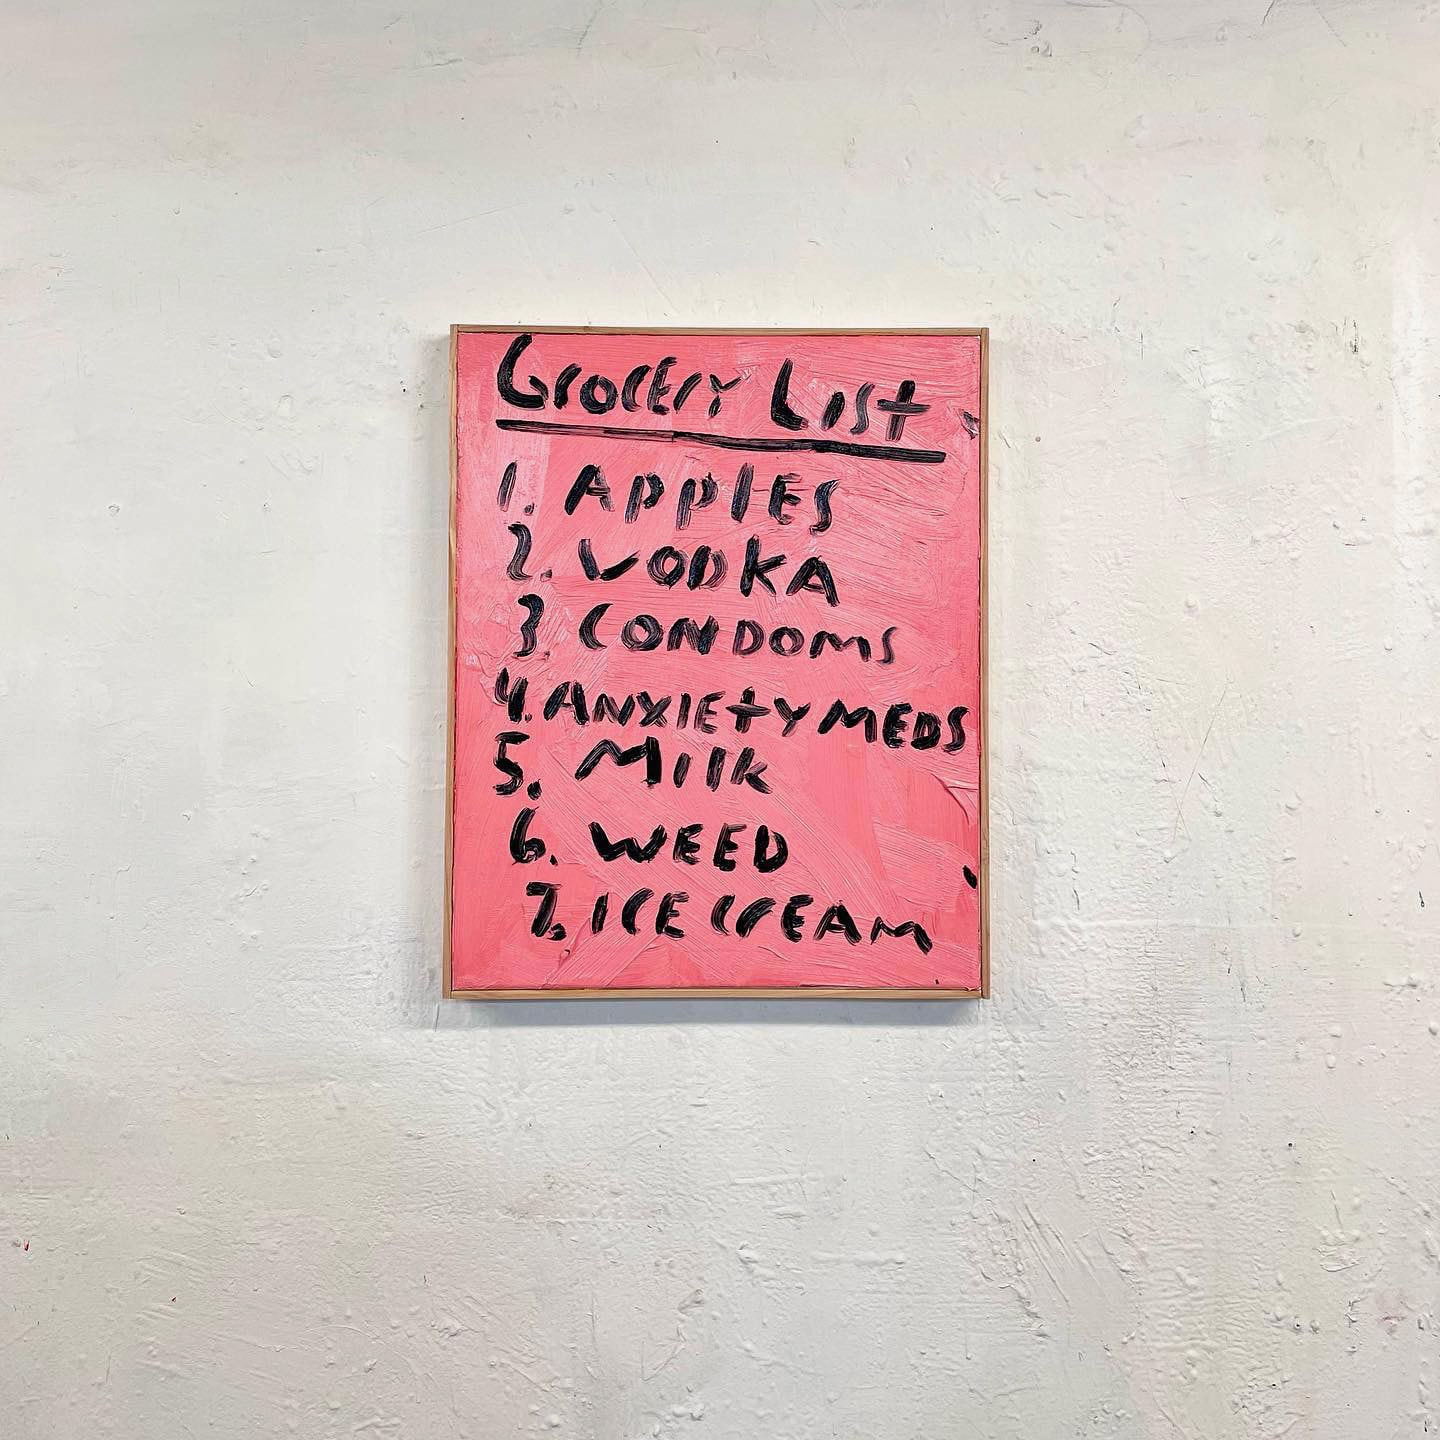 Grocery List
1. Apples
2. VODKA
3. CONDOMS
4. ANXIETY MEDS
5. Milk
6. WEED
7. ICE CREAM